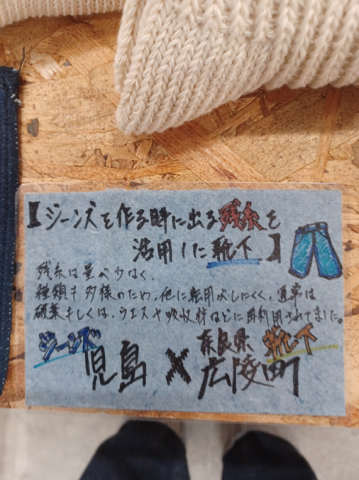 【ジーンズを作る時に出る残糸を
活用した靴下】
残糸は量が少なく、
種類も多様のため、他に転用がしにくく、通常は
破棄もしくは、ウエスや吸収材などに再利用されてました。
ジーンズ 奈良県 靴下
児島 × 広陵町